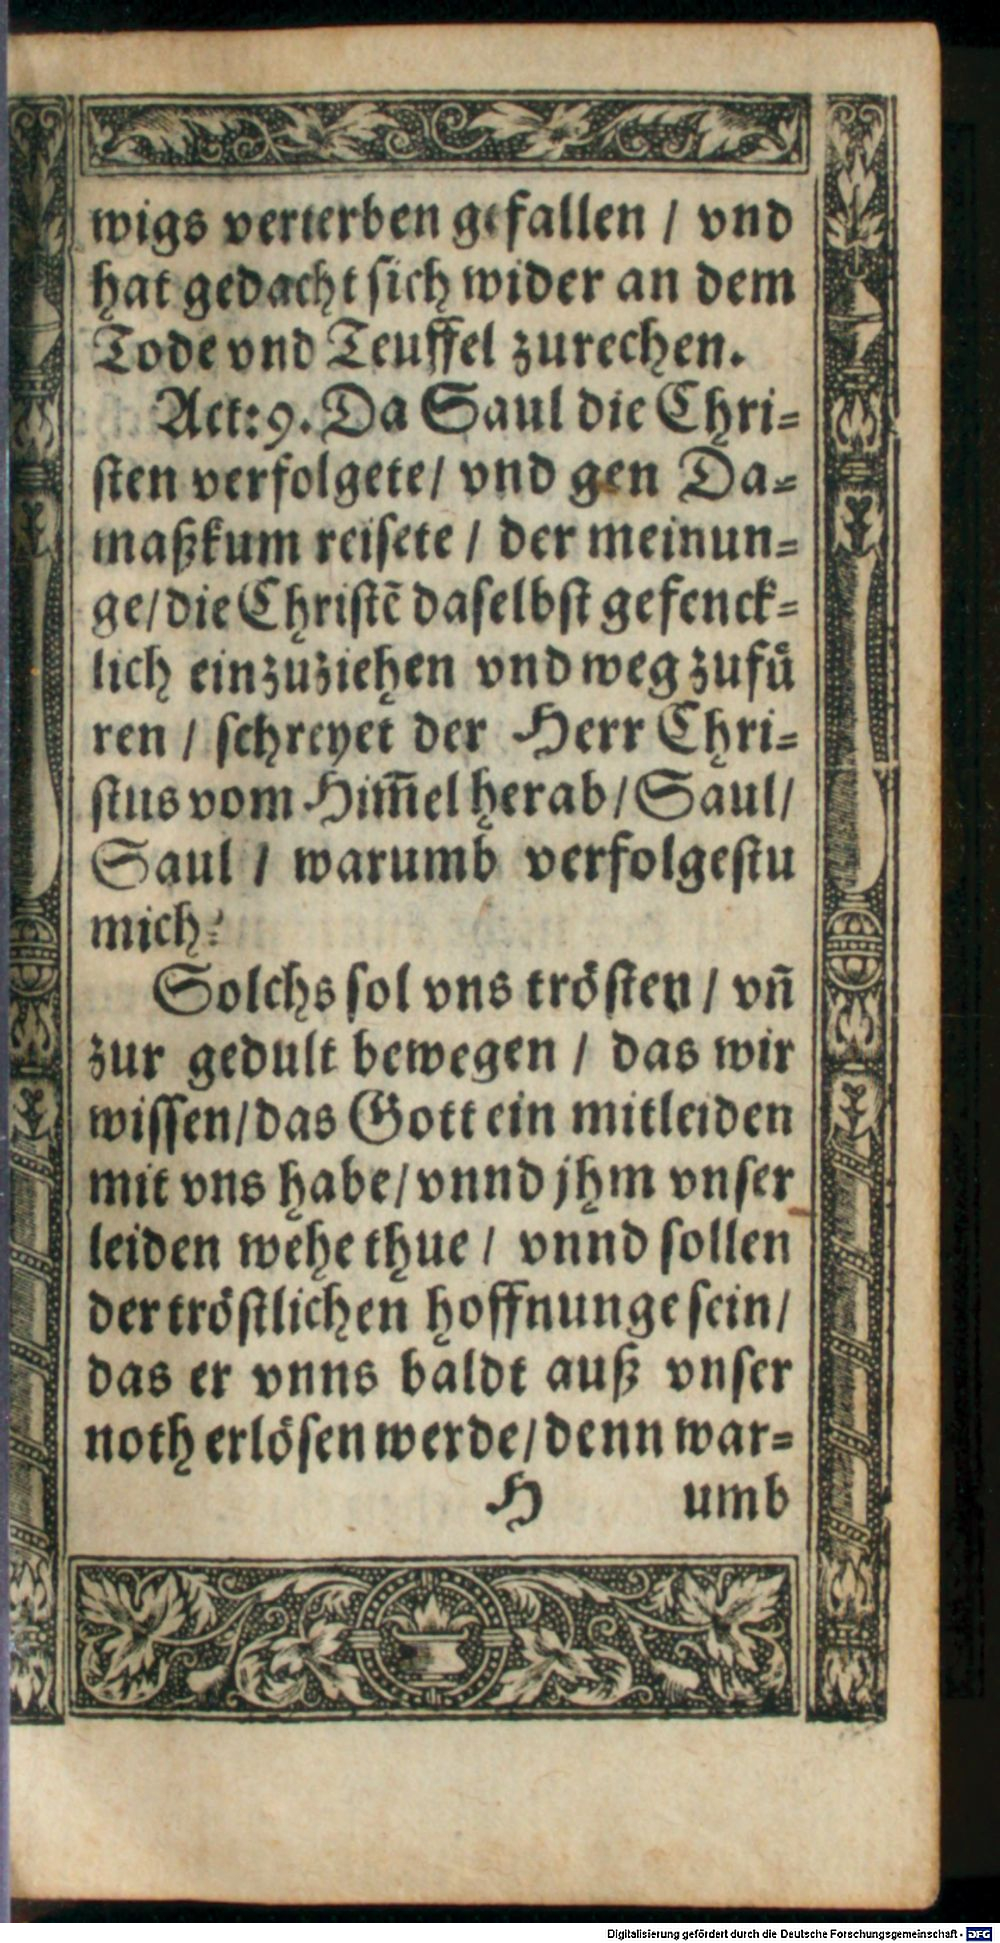 wigs verterben gefallen / vnd
hat gedacht sich wider an dem
Tode vnd Teuffel zurechen.
Act: 9. Da Saul die Chri=
sten verfolgete/ vnd gen Da=
maßkum reisete / der meinun=
ge/die Christē daselbst gefenck=
lich einzuziehen vnd weg zufuͤ
ren / schreyet der Herr Chri=
stus vom Him̄el herab/Saul/
Saul / warumb verfolgestu
mich?
Solchs sol vns trösten / vn̄
zur gedult bewegen / das wir
wissen/das Gott ein mitleiden
mit vns habe/vnnd jhm vnser
leiden wehe thue / vnnd sollen
der tröstlichen hoffnunge sein/
das er vnns baldt auß vnser
noth erlösen werde/denn war=
H umb
Digitalisierung gefördert durch die Deutsche Forschungsgemeinschaft - DFG